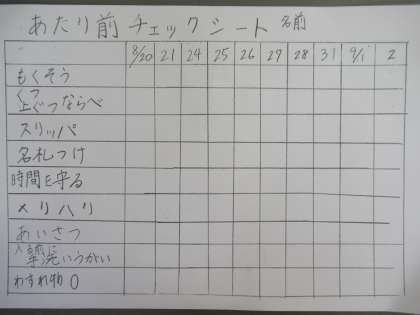 あたり前チェックシート 名前
8/20 21 24 25 26 27 28 31 9/1 2
もくそう
くつ
上ぐつならべ
スリッパ
名札つけ
時間を守る
メリハリ
あいさつ
手洗いうがい
わすれ物0